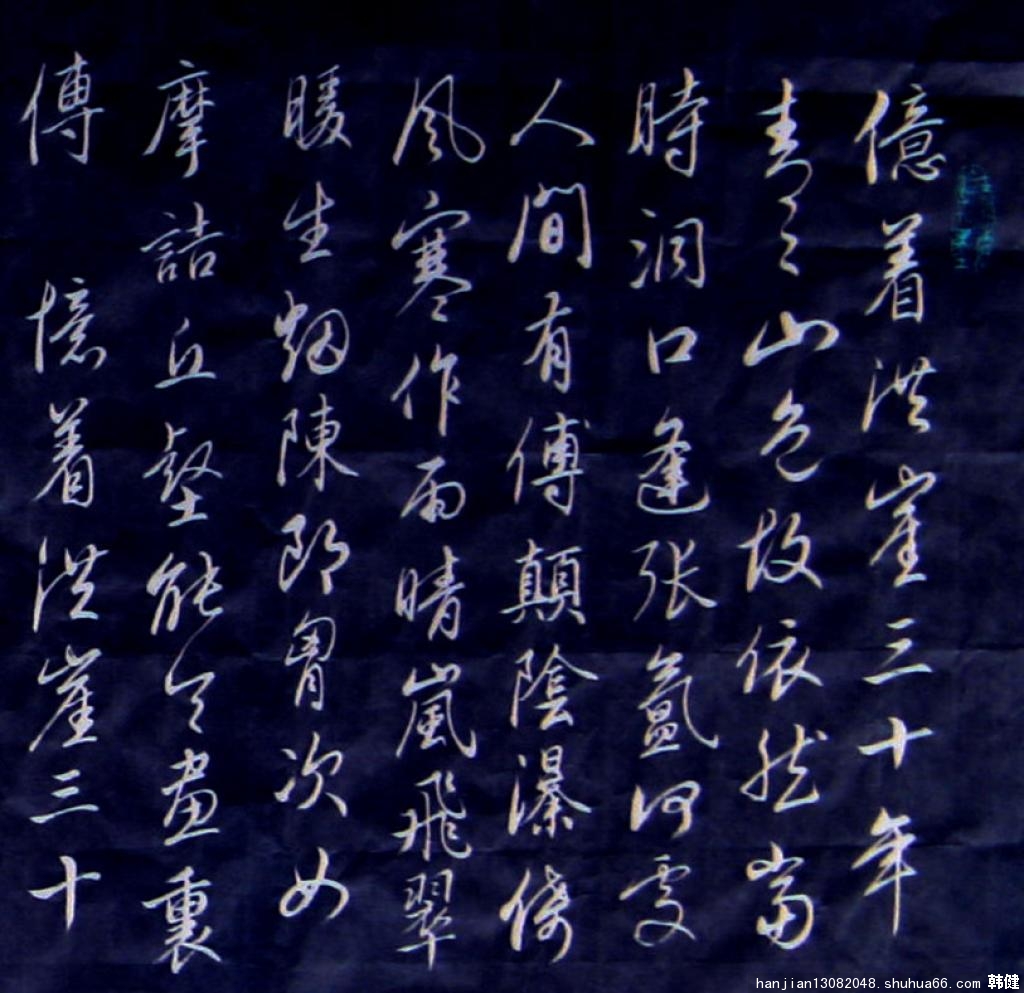 億着洪崖三十年
青々山色故依然當
時洞口逢张氲何處
人間有傅顛陰瀑倚
風寒作雨晴嵐飛翠
暖生烟陳郎胷次如
摩詰丘壑能令畫裏
傳 憶着洪崖三十
hanjian13082048.shuhua66.com 韩健